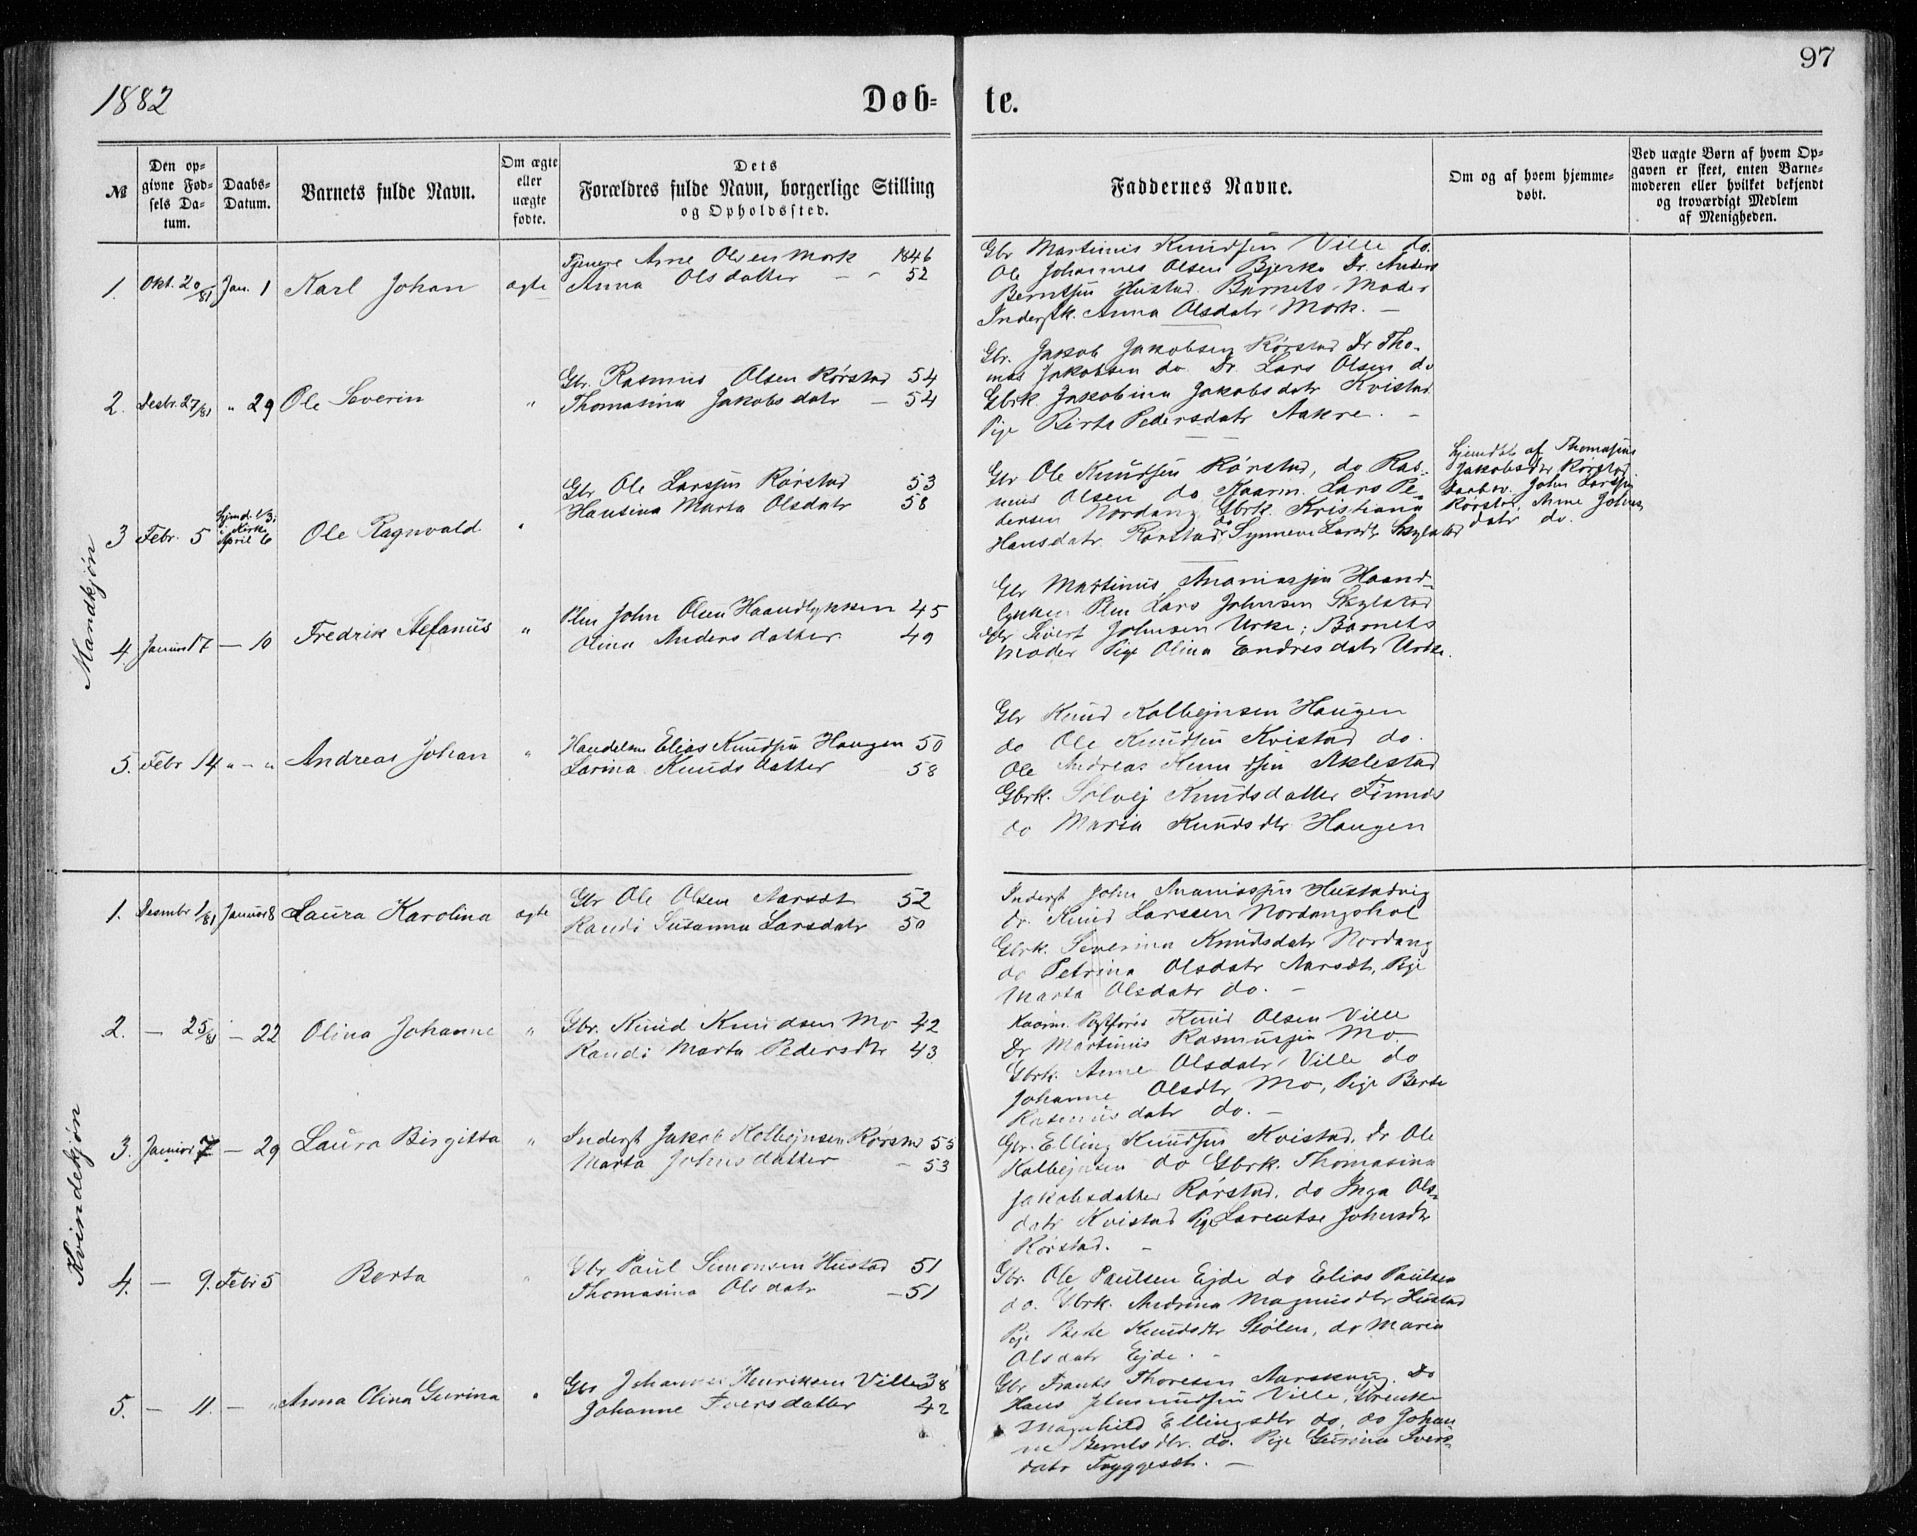 97
1882
Døb-
te.
№
Den op-
givne Fød-
sels Da-
tum.
Daabs-
Datum.
Barnets fulde Navn.
Om ægte
eller
uægte
fødte.
Dets
Forældres fulde Navn, borgerlige Stilling
og Opholdssted.
Faddernes Navne.
Om og af hvem hjemme-
døbt.
Ved uægte Børn af hvem Op-
gaven er skeet, enten Barne-
moderen eller hvilket bekjendt
og troværdigt Medlem
af Menigheden.
Mandkjøn
1. Okt. 20/81 Jan. 1 Karl Johan ægte
Arne Olsen Mork 1846
Anna Olsdatter 52
Gbr Martinus Knudsen Ville do.
Ole Johannes Olsen Bjerke Dr. Anders
Berntsen Hustad. Barnets Moder
Inderstk. Anna Olsdatr Mork. —
2. Desbr. 27/81 " 29 Ole Severin "
Gbr. Rasmus Olsen Rørstad 54
Thomasina Jakobsdatr — 54
Gbr. Jakob Jakobsen Rørstad Dr Tho-
mas Jakobsen do. Dr. Lars Olsen do
Gbrk Jakobina Jakobsdatr Kvistad
Pige Berte Pedersdatr Aakre. —
3 Febr. 5 Hjmd. 1/3
i Kirke
April 6 Ole Ragnvald "
Gbr Ole Larssen Rørstad 53
Hansina Marta Olsdatr 58
Gbr Ole Knudsen Rørstad, do Ras-
mus Olsen do Kaarm. Lars Pe-
dersen Nordang Gbrk. Kristiana
Hansdatr Rørstad, do Synneve Larsdtr Skylstad
Hjemdbt af Thomasine
Jakobsdtr Rørstad.
Daabsv. John Larssen
Rørstad, Anne Johns
datr do.
4. Januar 17 — 10 Fredrik Stefanus "
Plm John Olsen Haandlykken 45
Olina Andersdatter 49
Gbr Martinus Ananiassen Haand-
lykken Plm Lars Johnsen Skylstad
Gbr Sivert Johnsen Urke; Barnets
Moder Pige Olina Endresdatr Urke.
5. Febr 14 " — " Andreas Johan "
Handelsm Elias Knudsen Haugen 50
Larina Knudsdatter 58
Gbr Knud Kolbejnsen Haugen
do Ole Knudsen Kvistad do.
Ole Andreas Knudsen Aklestad
Gbrk. Solvej Knudsdatter Finnes
do Maria Knudsdtr Haugen
Kvindekjøn
1. Desmbr 1/81 Januar 8 Laura Karolina ægte
Gbr Ole Olsen Aarsæt 52
Randi Susanna Larsdatr 50
Inderst John Ananiassen Hustadvig
Dr. Knud Larssen Nordangshol
Gbrk. Severina Knudsdatr Nordang
do Petrina Olsdatr Aarsæt, Pige
Marta Olsdatr do. —
2. — 25/81 — 22 Olina Johanne "
Gbr. Knud Knudsen Mo 42
Randi Marta Pedersdtr 43
Kaarm. Knud Olsen Ville
Dr Martinus Rasmussen Mo.
Gbrk. Anne Olsdatr Ville do
Johanne Olsdtr Mo, Pige Berte
Rasmusdatr do. —
3. Januar 7 — 29 Laura Birgitta "
Inderst Jakob Kolbejnsen Rørstad 55
Marta Johnsdatter — 53
Gbr. Elling Knudsen Kvistad, Dr Ole
Kolbejnsen do Gbrk. Thomasina
Jakobsdatter Rørstad. do Inga Ols-
datr Kvistad Pige Larentse Johnsdtr
Rørstad. —
4. — 9. Febr 5 Berta "
Gbr Paul Simonsen Hustad 51
Thomasina Olsdatr — 51
Gbr. Ole Paulsen Ejde do Elias Paulsen
do. Gbrk. Andrina Magnusdtr Hustad
Pige Berte Knudsdtr Stølen, do Maria
Olsdatr Ejde. —
5. — 11. — " Anna Olina Gurina "
Gbr Johannes Henriksen Ville 38
Johanne Iversdatter 42
Gbr Frants Thoresen Aarskaug. Do
Hans Ville, Gbrenke
Magnhild Ellingsdtr do, do Johan
ne Berntsdtr. do. Pige Gurina Ivers-
datr Tryggesæt. —